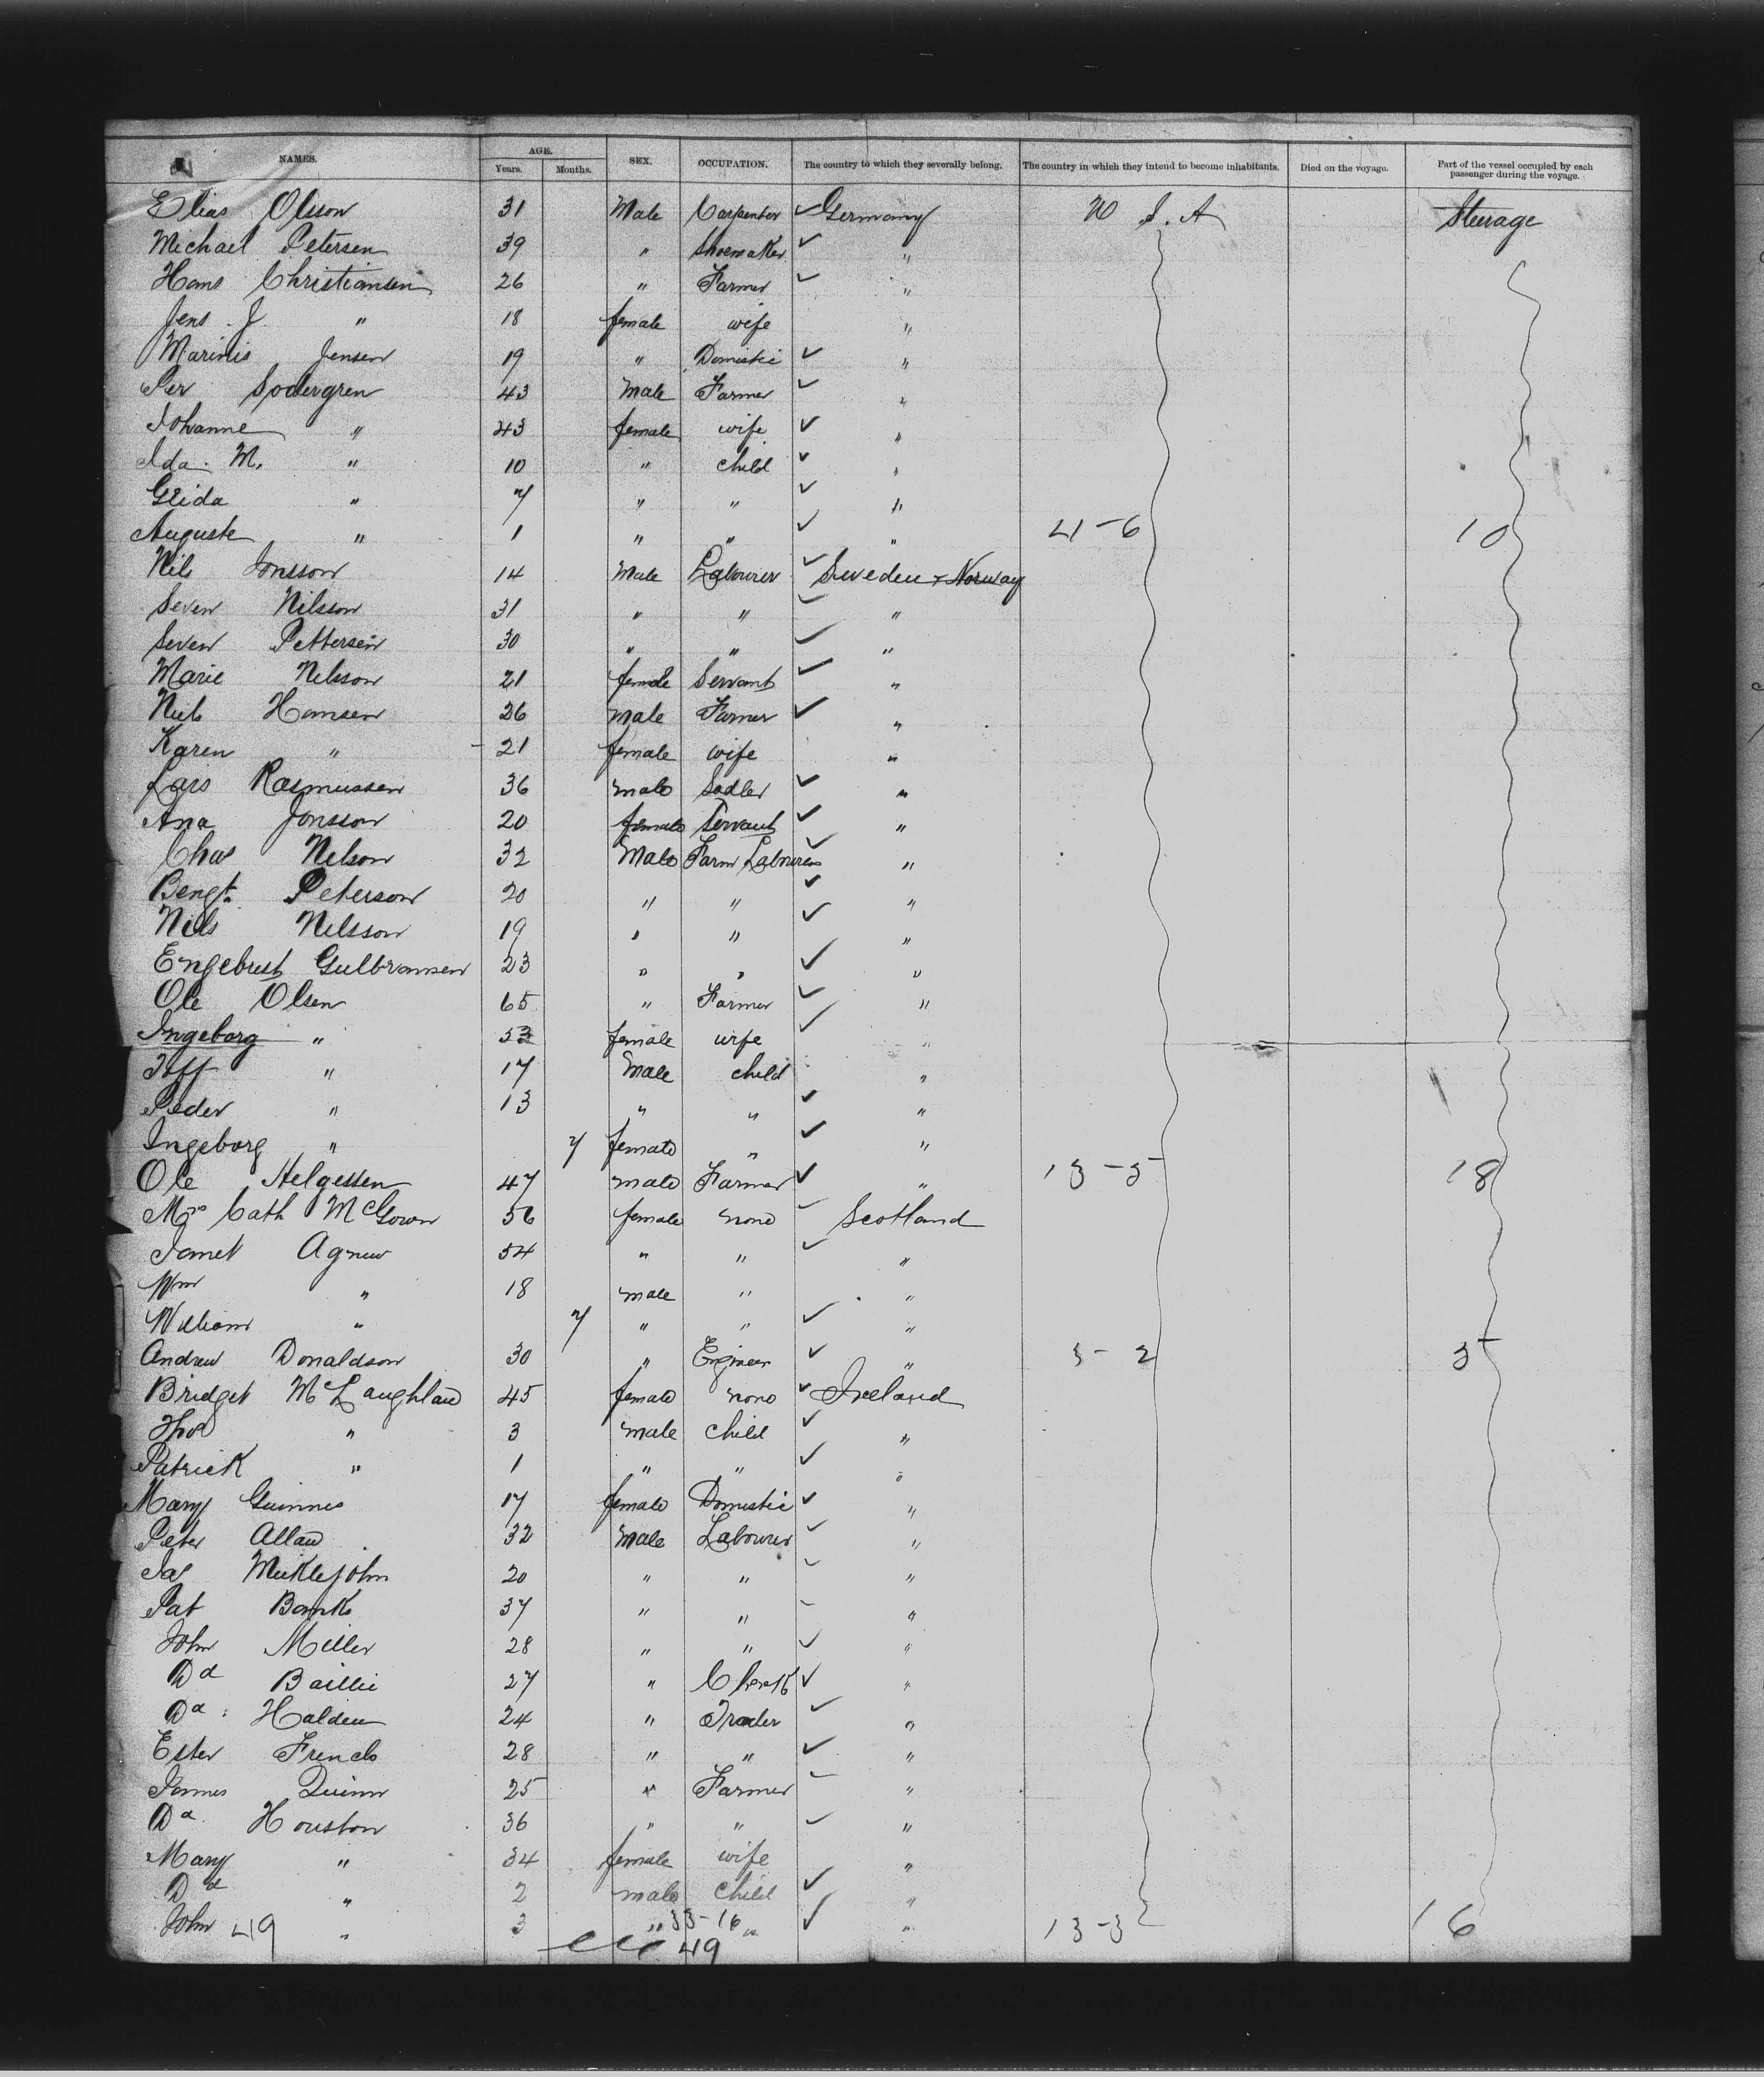 NAMES. AGE. SEX. OCCUPATION. The country to which they severally belong. The country in which they intend to become inhabitants. Died on the voyage. Part of the vessel occupied by each passenger during the voyage.
Years. Months.
Elias Olsson 31 Male Carpenter ✓ Germany U S. A Steerage
Michael Petersen 39 " Shoemaker ✓ "
Hans Christiansen 26 " Farmer ✓ "
Jens J. " 18 female wife "
Marinis Jensen 19 " Domistic ✓ "
Per Sodergren 43 Male Farmer ✓ "
Johanne " 43 female wife ✓ "
Ida. M. " 10 " child ✓ "
" 7 " " ✓ "
Auguste " 1 " " ✓ " 4-6 10
Nils Jonsson 14 Male Labourer ✓ Sweden & Norway
Seven Nilsson 31 " " ✓ "
Seven Pettersen 30 " " ✓ "
Marie Nelsson 21 female Servant ✓ "
Niels Hansen 26 male Farmer ✓ "
Karen " 21 female wife "
Lars Rasmussen 36 male Sadler ✓ "
Ana Jonsson 20 female Servant ✓ "
Chas Nelson 32 Male Farm Labourers ✓ "
Bengt. Peterson 20 " " ✓ "
Nils Nelsson 19 " " ✓ "
Engebrest Gulbransen 23 " " ✓ "
Ole Olsen 65 " Farmer ✓ "
Ingeborg " 53 female wife ✓ "
" 17 Male child "
Peder " 13 " " ✓ "
Ingeborg " 7 female " ✓ "
Ole Helgessen 47 male Farmer ✓ " 13-5 18
Mrs Cath McGown 56 female none ✓ Scotland
Janet Agnew 54 " " ✓ "
Wm " 18 male " "
William " 7 " " ✓ "
Andrew Donaldson 30 " Engineer ✓ " 3-2 5
Bridget McLaughlan 45 female none ✓ Ireland
Thos " 3 male child ✓ "
Patrick " 1 " " ✓ "
Mary Guinnes 17 female Domistic ✓ "
Peter Allan 32 Male Labourer ✓ "
Jas Meiklejohn 20 " " ✓ "
Pat Banks 37 " " ✓ "
John Miller 28 " " ✓ "
Dd Baillie 27 " Clerk ✓ "
Dd. Halden 24 " Trader ✓ "
Ester French 28 " " ✓ "
James Quinn 25 " Farmer ✓ "
Dd Houston 36 " " ✓ "
Mary " 34 female wife "
Dd " 2 male child ✓ "
John " 3 " " ✓ " 13-3 16
49 33-16
49